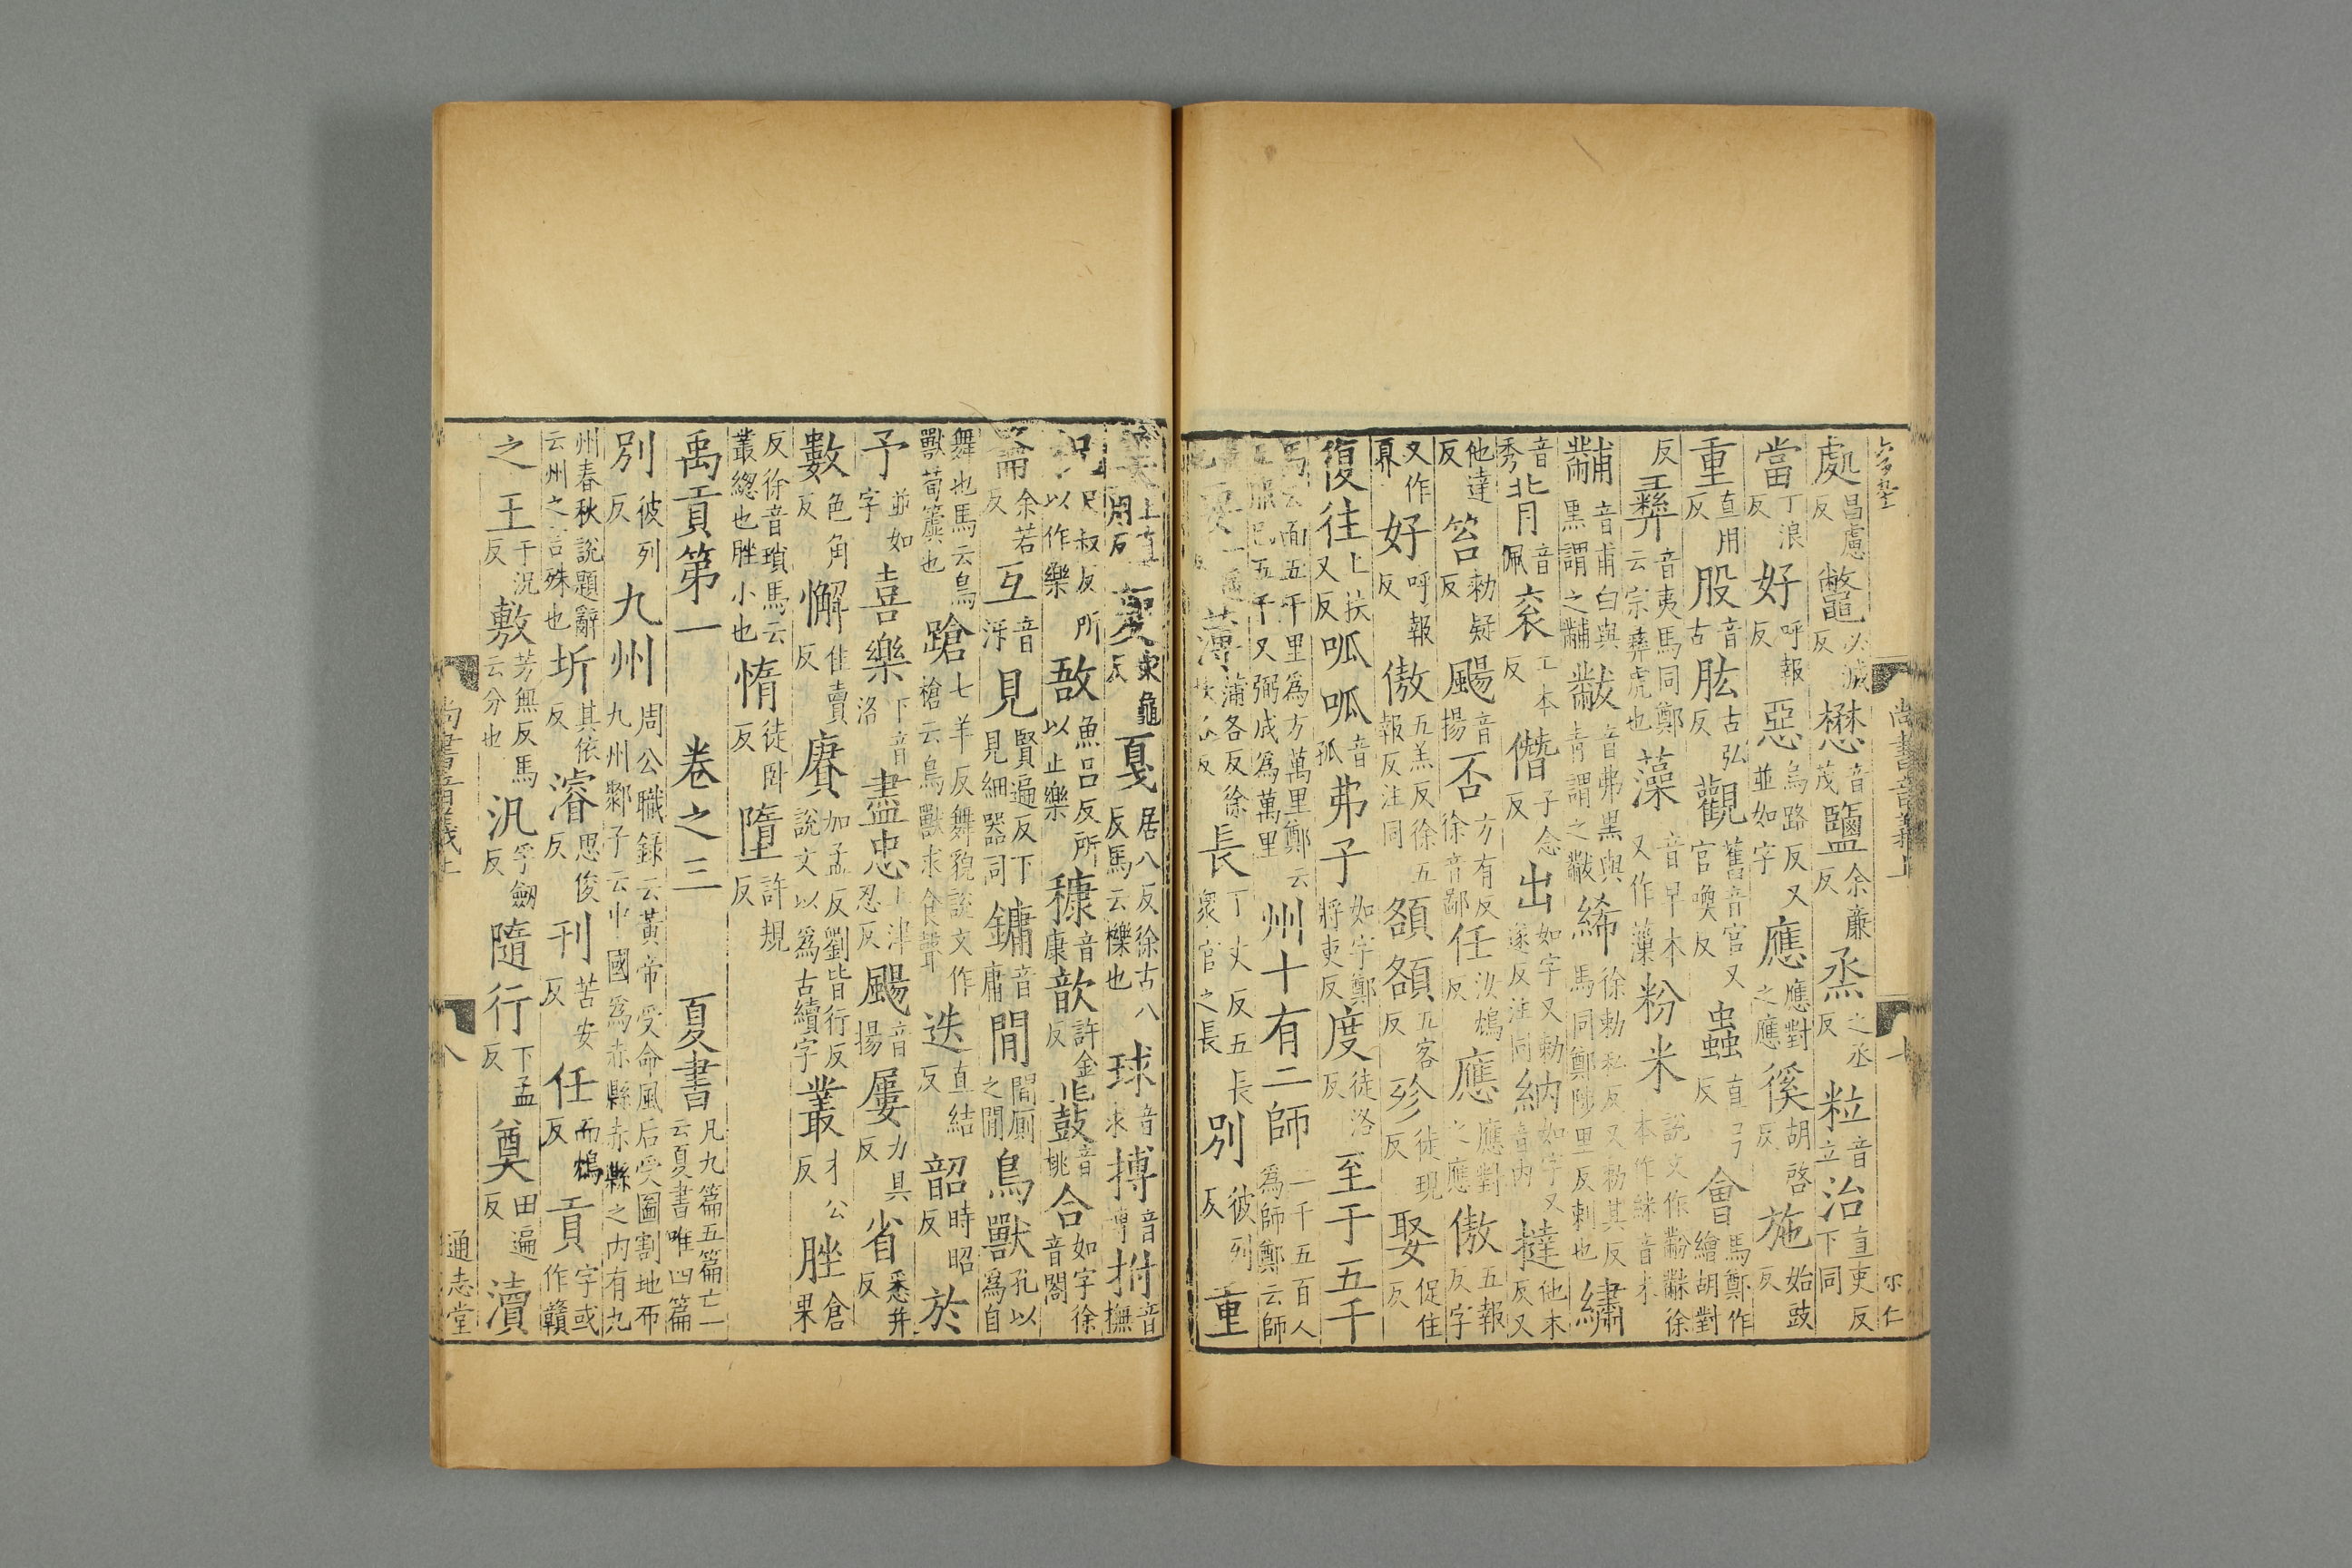 處昌慮反鼈必滅反懋音茂鹽余廉反烝之丞反粒音立治直吏反下同
當丁浪反好呼報反惡烏路反又並如字應應對之應徯胡啓反施始豉反
重直用反股音古肱古弘反觀舊音官又官喚反蟲直弓反會馬鄭作繪胡對
反彝音夷馬同鄭云宗彝虎也藻音早本又作薻粉米說文作黺䋛徐本作絲音米
黼音甫白與黑謂之黼黻音弗黑與青謂之黻絺徐勑私反又勑其反馬同鄭陟里反刺也繡
音秀背音佩衮工本反僭子念反出如字又勑遂反注同納如字又音内撻他末反又
他達反笞勑疑反颺音揚否方有反徐音鄙任汝鴆反應應對之應傲五報反字
又作奡好呼報反傲五羔反徐五報反注同頟頟五客反殄徒現反娶促住反
復往上扶又反呱呱音孤弗子如字鄭將吏反度徒洛反至于五千
馬云面五千里爲方萬里鄭云五服已五千又弼成爲萬里州十有二師一千五百人爲師鄭云師
薄蒲各反徐長丁丈反五長衆官之長別彼列反重
夔求龜反戛居八反徐古八反馬云櫟也球音求搏音博拊音撫
尺叔反所以作樂敔魚呂反所以止樂穅音康歆許金反鼗音桃合如字徐音閤
余若反互音沍見賢遍反下見細器司鏞音庸閒閒廁之閒鳥獸孔以爲自
舞也馬云鳥獸筍簴也蹌七羊反舞貌說文作牄云鳥獸求食聲迭直結反韶時昭反於
予並如字喜樂下音洛盡忠上津忍反颺音揚屢力具反省悉井反
數色角反懈佳賣反賡加孟反劉皆行反說文以爲古續字叢才公反脞倉果
反徐音瑣馬云叢總也脞小也惰徒卧反墮許規反
禹貢第一 卷之三 夏書凡九篇五篇亡一云夏書唯四篇
別彼列反九州周公職錄云黃帝受命風后受圖割地布九州鄹子云中國爲赤縣赤縣之内有九
州春秋說題辭云州之言殊也圻其依反濬思俊反刋苦安反任而鴆反貢字或作贛
之王于況反敷芳無反馬云分也汎孚劒反隨行下孟反奠田遍反瀆
尚書音義上
八
通志堂